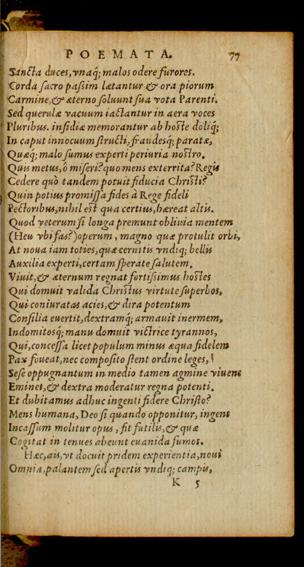 POEMATA. 77
Sancta duces, vnaq́; malos odere furores.
Corda sacro passim lætantur & ora piorum
Carmine, & æterno soluunt sua vota Parenti.
Sed querulæ vacuum iactantur in aera voces
Pluribus. insidiæ memorantur ab hoste doliq́;
In caput innocuum structi, fraudesq́; paratæ,
Quæq́; malo sumus experti periuria nostro.
Quis metus, ô miseri? quo mens exterrita? Regis
Cedere quò tandem potuit fiducia Christi?
Quin potius promissa fides à Rege fideli
Pectoribus, nihil est qua certius, hæreat altis.
Quod veterum si longa premunt obliuia mentem
(Heu vbi fas?) operum, magno quæ protulit orbi,
At noua iam toties, quæ cernitis vndiq́; bellis
Auxilia experti, certam sperate salutem.
Viuit, & æternum regnat fortissimus hostes
Qui domuit valida Christus virtute superbos,
Qui coniuratas acies, & dira potentum
Consilia euertit, dextramq́; armauit inermem,
Indomitosq́; manu domuit victrice tyrannos,
Qui, concessa licet populum minus æqua fidelem
Pax foueat, nec composito stent ordine leges,
Sese oppugnantum in medio tamen agmine viuens
Eminet, & dextra moderatur regna potenti.
Et dubitamus adhuc ingenti fidere Christo?
Mens humana, Deo si quando opponitur, ingens
Incassum molitur opus, fit futilis, & quæ
Cogitat in tenues abeunt euanida fumos.
Hæc, ais, vt docuit pridem experientia, noui
Omnia, palantem sed apertis vndiq́; campis,
K 5